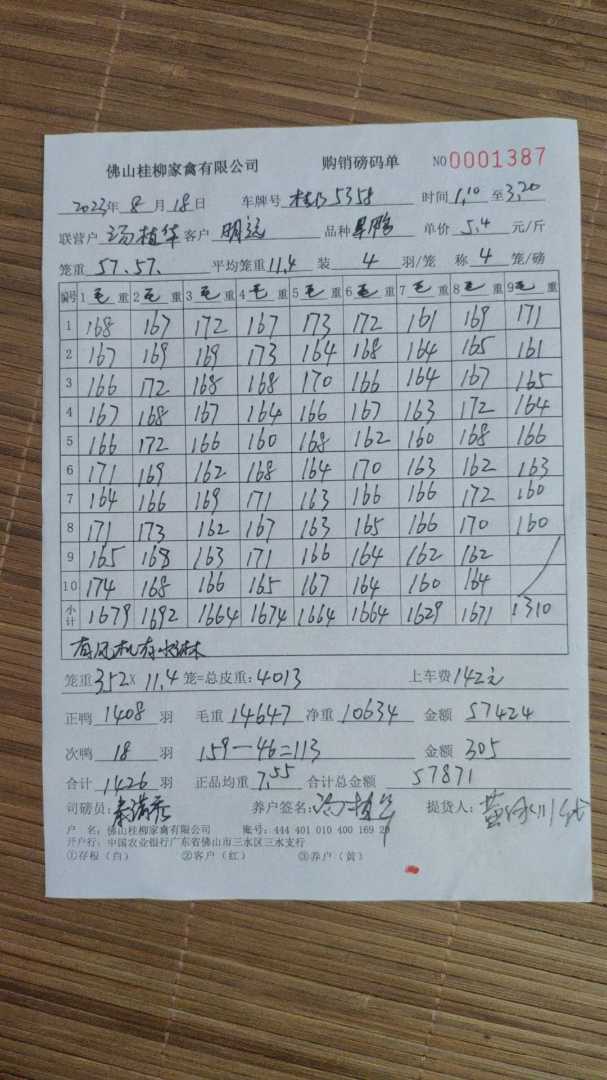 佛山桂柳家禽有限公司 购销磅码单 NO 0001387
2023年 8月 18日 车牌号 桂 5358 时间 1,10 至 3,20
联营户 冯植华 客户 明远 品种 单价 5.4 元/斤
笼重 57.57. 平均笼重 11.4 装 4 羽/笼 称 4 笼/磅
编号 1毛重 2毛重 3毛重 4毛重 5毛重 6毛重 7毛重 8毛重 9毛重
1 168 167 172 167 173 172 161 169 171
2 167 169 169 173 164 168 164 165 161
3 166 172 168 168 170 166 164 167 165
4 167 168 167 164 166 167 163 172 164
5 166 172 166 160 168 162 160 168 166
6 171 169 162 168 164 170 163 162 163
7 164 166 169 171 163 166 166 172 160
8 171 173 162 167 163 165 166 170 160
9 165 168 163 171 166 164 162 162
10 174 168 166 165 167 164 160 164
小计 1679 1692 1664 1674 1664 1664 1629 1671 1310
有风机有水淋
笼重 352 × 11.4 笼=总皮重: 4013 上车费 142元
正鸭 1408 羽 毛重 14647 净重 10634 金额 57424
次鸭 18 羽 159-46=113 金额 305
合计 1426 羽 正品均重 7.55 合计总金额 57871
司磅员: 养户签名: 冯植华 提货人:
户 名: 佛山桂柳家禽有限公司 账号: 444 401 010 400 169 20
开户行: 中国农业银行广东省佛山市三水区三水支行
①存根(白) ②客户(红) ③养户(黄)